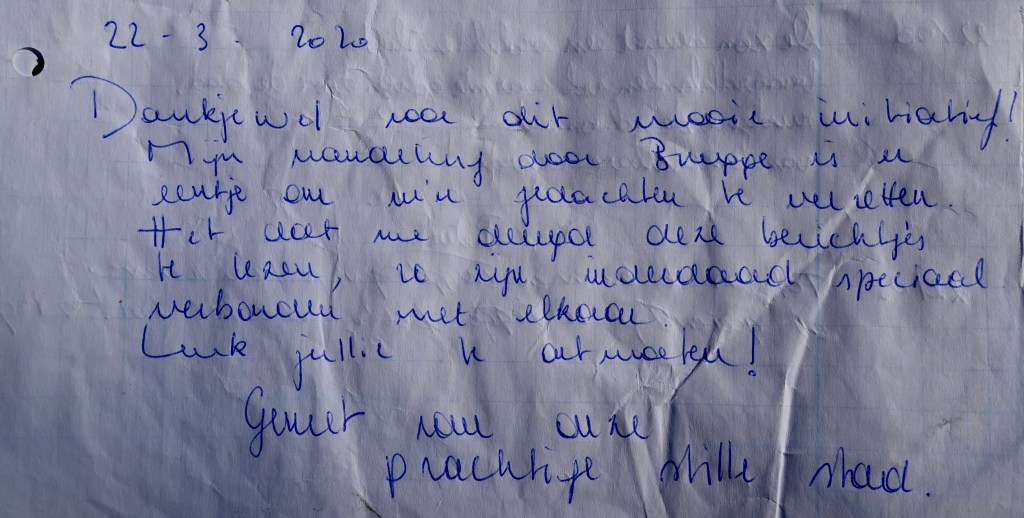 22 - 3 - 2020
Dankjewel voor dit mooie initiatief!
Mijn wandeling door Brugge is er
eentje om m'n gedachten te verzetten.
Het doet me deugd deze berichtjes
te lezen, zo zijn inderdaad speciaal
verbonden met elkaar.
Leuk jullie te ontmoeten!
Geniet van onze
prachtige stille stad.